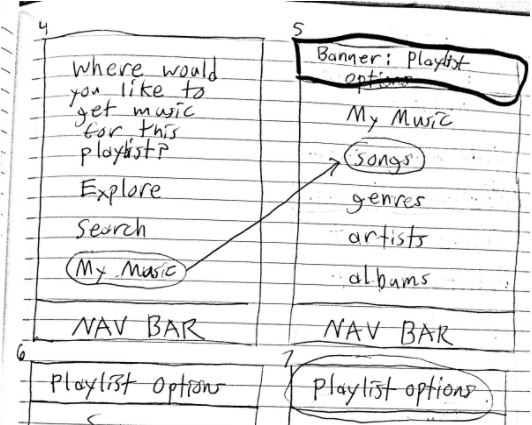 4
Where would
you like to
get music
for this
playlist?
Explore
Search
My Music
NAV BAR
5
Banner: Playlist
options
My Music
songs
genres
artists
albums
NAV BAR
6
Playlist Options
7
Playlist options